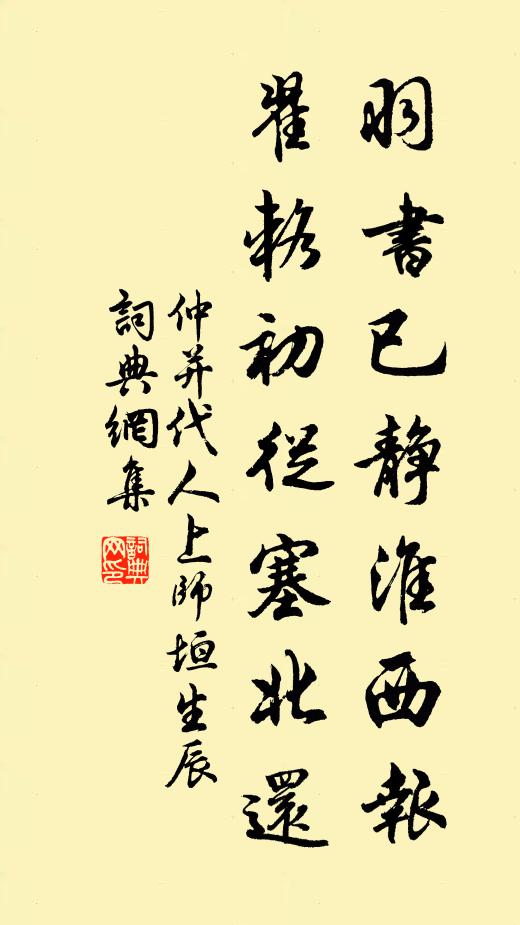 羽書已静淮西報
翟輅初從塞北還
仲并代人上師垣生辰
詞典網集
詞典網印